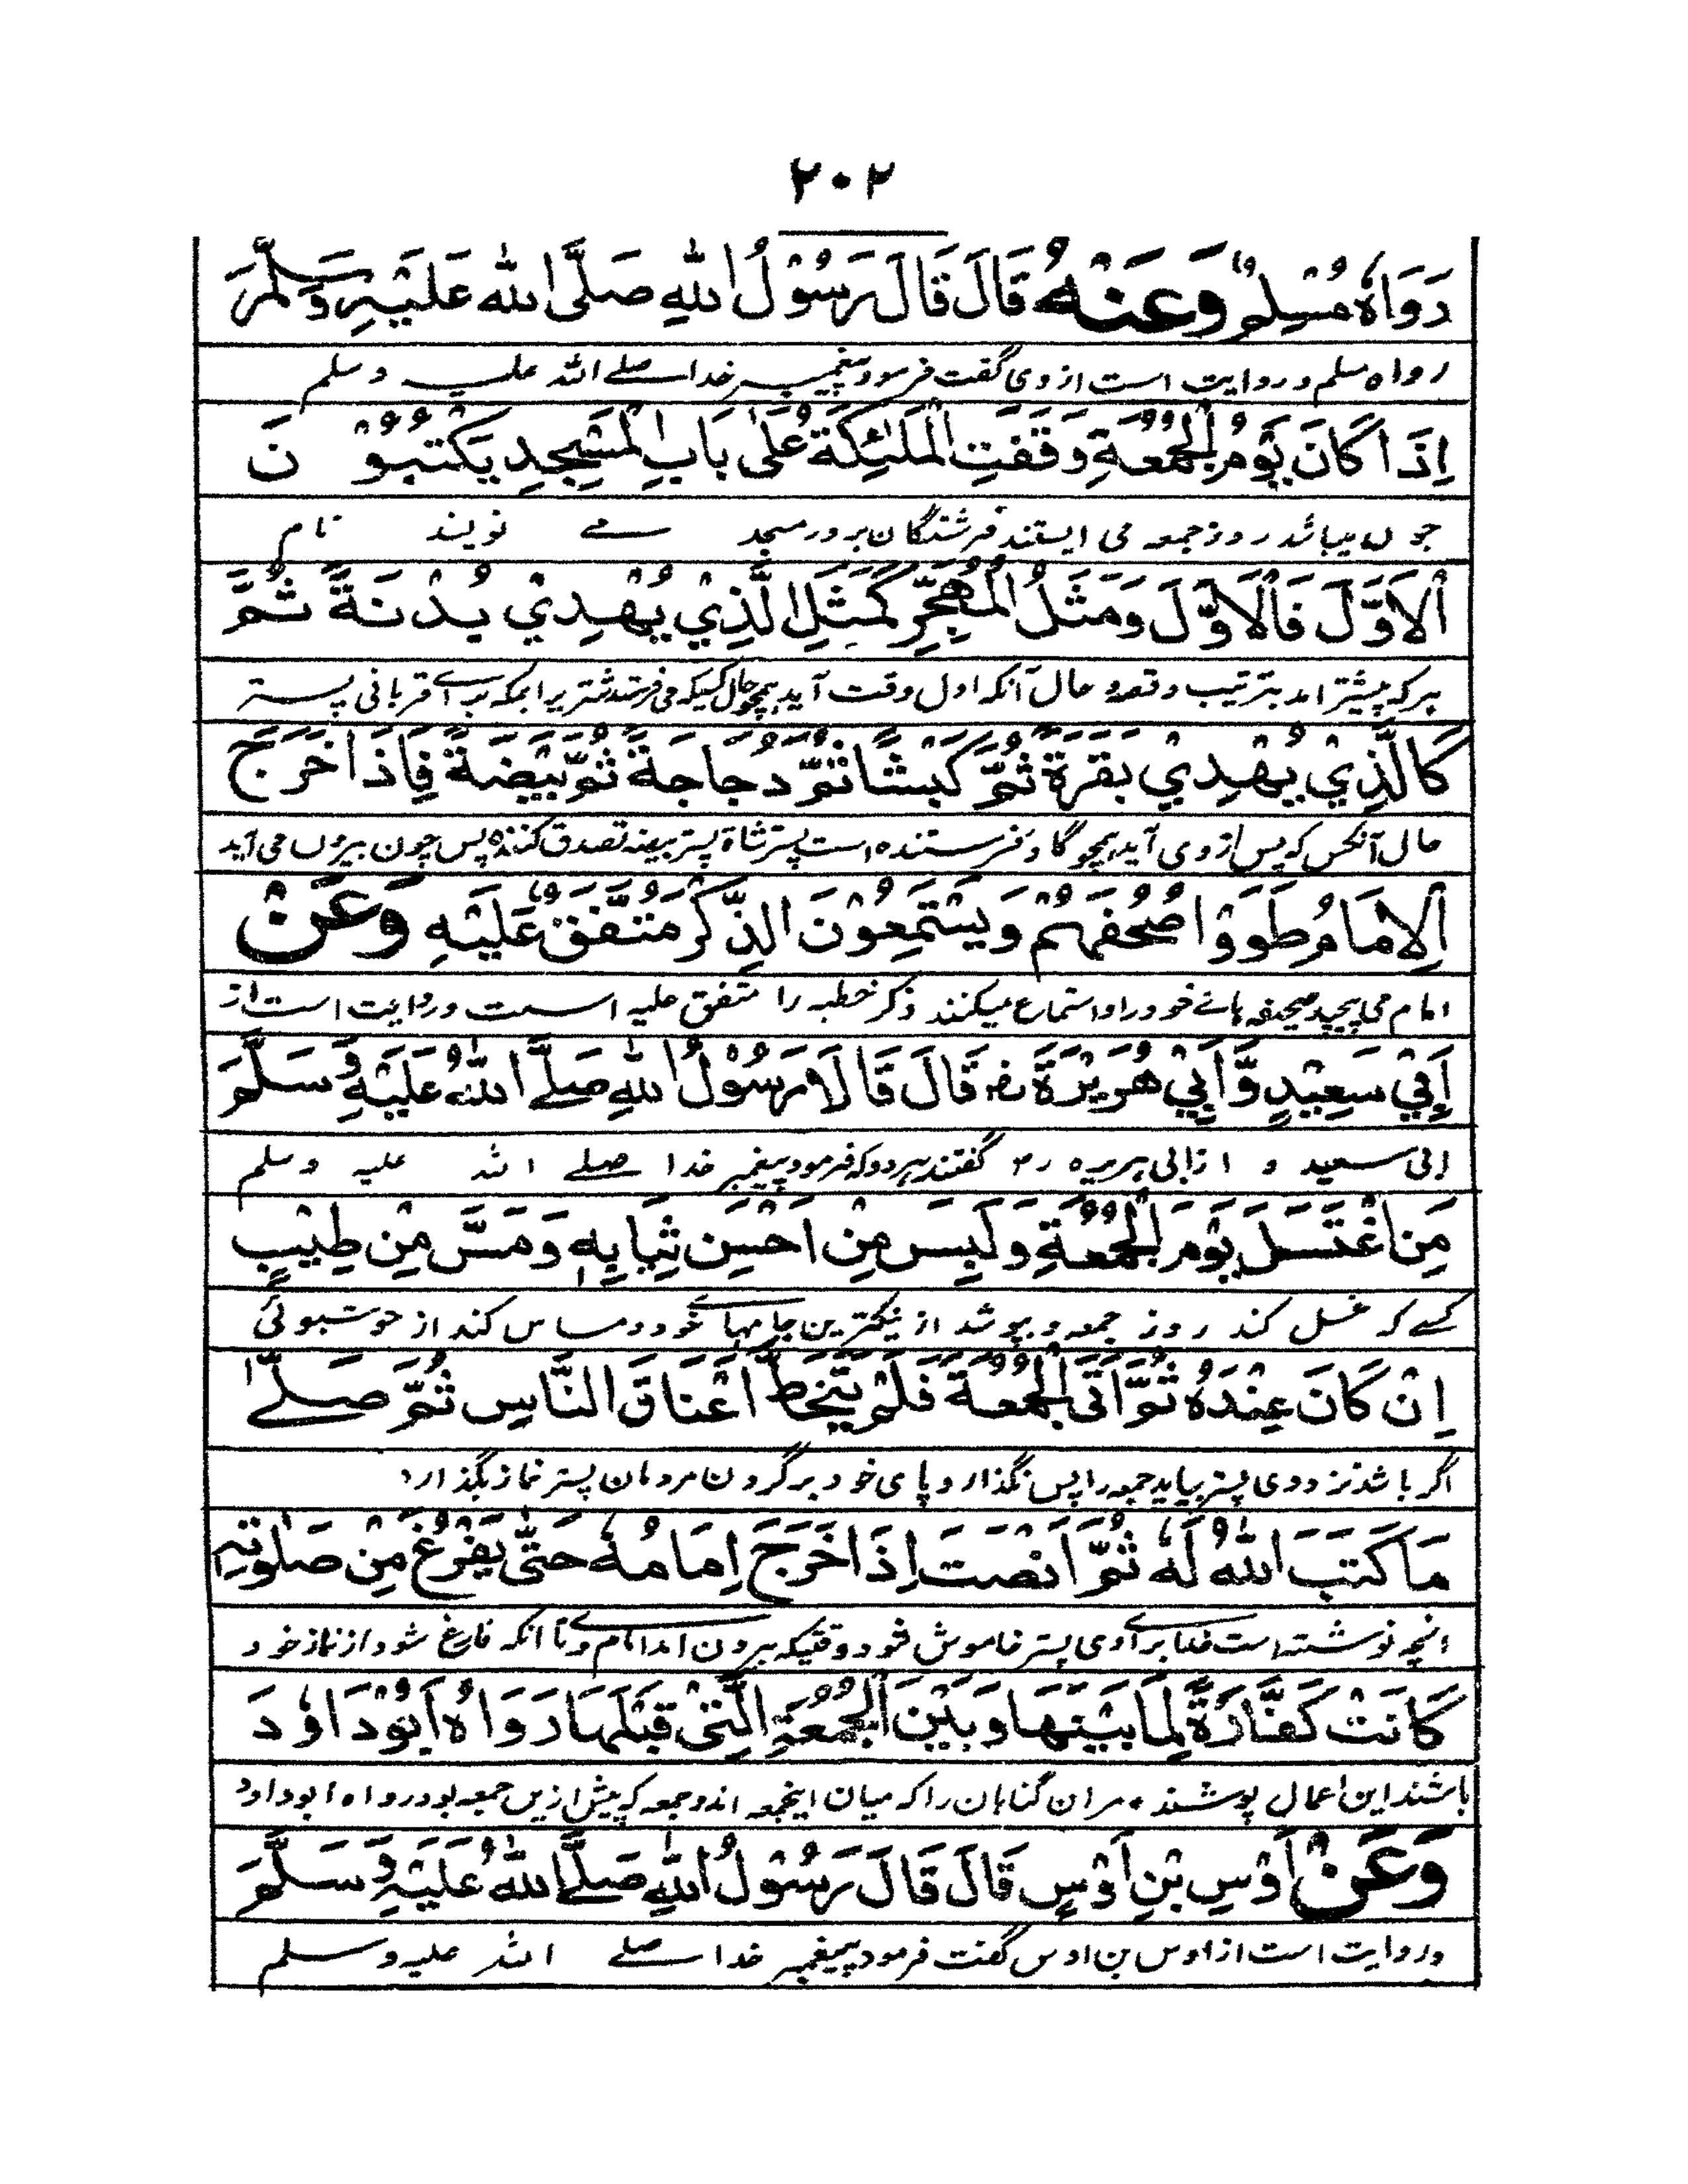 ٢٠٢
رَوَاهُ مُسْلِمٌ وَعَنْهُ قَالَ قَالَ رَسُوْلُ اللهِ صَلَّى اللهُ عَلَيْهِ وَسَلَّمَ
رواه مسلم و روایت است از وی گفت فرمود پیغمبر خدا صلے اللہ علیہ وسلم
اِذَا كَانَ يَوْمُ الْجُمُعَةِ وَقَفَتِ الْمَلٰئِكَةُ عَلٰى بَابِ الْمَسْجِدِ يَكْتُبُوْنَ
چوں میباشد روز جمعہ می ایستند فرشتگان بر در مسجد مے نویند نام
الْاَوَّلَ فَالْاَوَّلَ وَمَثَلُ الْمُهَجِّرِ كَمَثَلِ الَّذِيْ يُهْدِيْ بُدْنَةً ثُمَّ
ہر کہ پیشتر اید بترتیب و حال آنکہ اول وقت آید ہمچو حال کسیکہ می فرستد شتر برائے قربانی پستر
كَالَّذِيْ يُهْدِيْ بَقَرَةً ثُمَّ كَبْشًا ثُمَّ دُجَاجَةً ثُمَّ بَيْضَةً فَاِذَا خَرَجَ
حال آنکس کہ پس از وی آید ہمچو گاو فرستنده است پستر شاة پستر بیضہ تصدق کننده پس چون بیروں می آید
الْاِمَامُ طَوَوْا صُحُفَهُمْ وَيَسْتَمِعُوْنَ الذِّكْرَ مُتَّفَقٌ عَلَيْهِ وَعَنْ
امام می پیچید صحیفہ ہائے خود را و استماع میکنند ذکر خطبہ را متفق علیہ است و روایت است از
اَبِيْ سَعِيْدٍ وَّاَبِيْ هُرَيْرَةَ رض قَالَ قَالَا رَسُوْلُ اللهِ صَلَّے اللهُ عَلَيْهِ وَسَلَّمَ
ابی سعید و از ابی ہریره رض گفتند ہر دو کہ فرمود پیغمبر خدا صلے اللہ علیہ وسلم
مَنِ اغْتَسَلَ يَوْمَ الْجُمُعَةِ وَلَبِسَ مِنْ اَحْسَنِ ثِيَابِهٖ وَمَسَّ مِنْ طِيْبٍ
کسے کہ غسل کند روز جمعہ و بپوشد از نیکترین جامہائے خود و مساس کند از خوشبوئی
اِنْ كَانَ عِنْدَهُ ثُمَّ اَتَى الْجُمُعَةَ فَلَمْ يَتَخَطَّ اَعْنَاقَ النَّاسِ ثُمَّ صَلَّے
اگر باشد نزد وی پستر بیاید جمعہ را پس نگذارد پای خود بر گردن مردمان پستر نماز بگذارد
مَا كَتَبَ اللهُ لَهٗ ثُمَّ اَنْصَتَ اِذَا خَرَجَ اِمَامُهٗ حَتّٰى يَفْرُغَ مِنْ صَلٰوتِهٖ
انچہ نوشتہ است خدا برائے وی پستر خاموش شود وقتیکہ بیرون اید امام وے تا انکہ فارغ شود از نماز خود
كَانَتْ كَفَّارَةً لِمَا بَيْنَهَا وَبَيْنَ الْجُمُعَةِ الَّتِيْ قَبْلَهَا رَوَاهُ اَبُوْ دَاوٗدَ
باشند این اعمال پوشنده مر ان گناہان را کہ میان اینجمعہ اند و جمعہ کہ پیش ازیں جمعہ بود رواه ابو داود
وَعَنْ اَوْسِ بْنِ اَوْسٍ قَالَ قَالَ رَسُوْلُ اللهِ صَلَّے اللهُ عَلَيْهِ وَسَلَّمَ
و روایت است از اوس بن اوس گفت فرمود پیغمبر خدا صلے اللہ علیہ وسلم